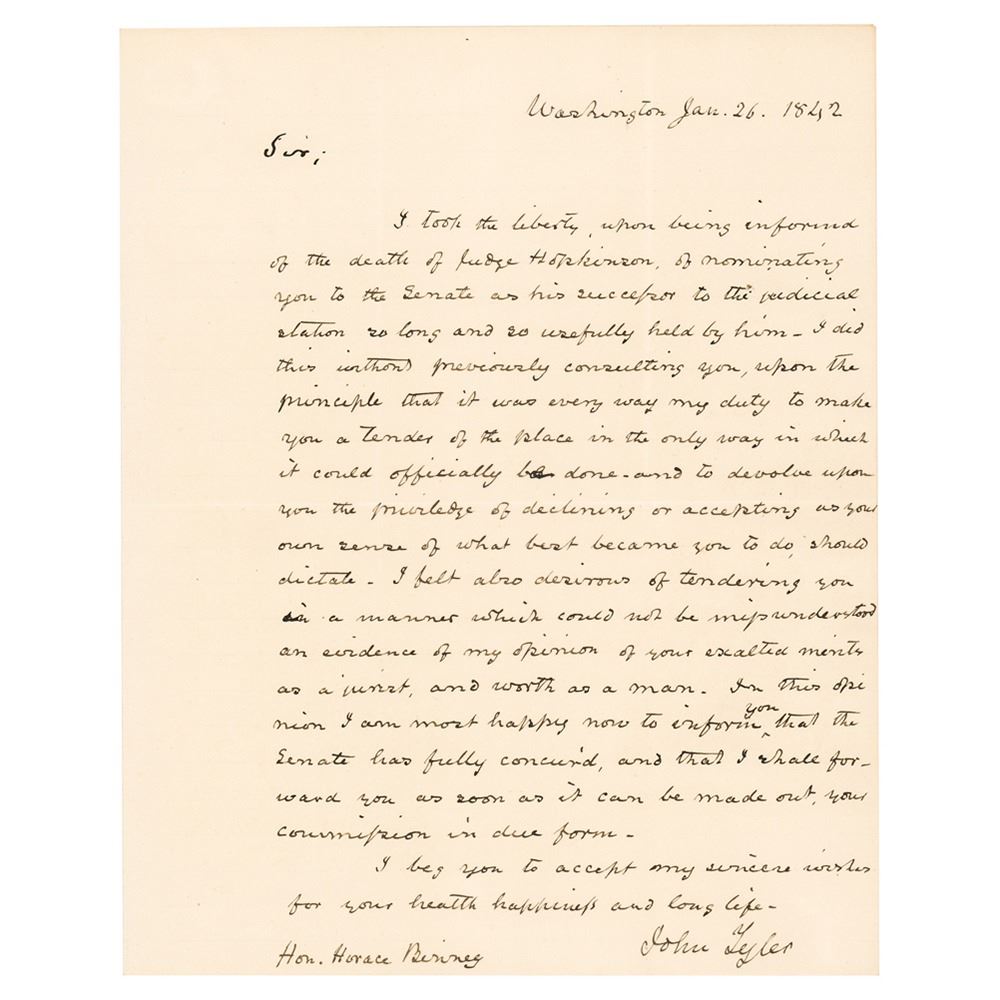 Washington Jan. 26. 1842
Sir;
I took the liberty, upon being informd
of the death of Judge Hopkinson, of nominating
you to the Senate as his successor to the judicial
station so long and so usefully held by him - I did
this without previously consulting you, upon the
principle that it was every way my duty to make
you a tender of the place in the only way in which
it could officially be done - and to devolve upon
you the priviledge of declining or accepting as your
own sense of what best became you to do, should
dictate - I felt also desirous of tendering you
in a manner which could not be misunderstood
an evidence of my opinion of your exalted merits
as a jurist, and worth as a man - In this opi
nion I am most happy now to inform you that the
Senate has fully concur'd, and that I shall for-
ward you as soon as it can be made out, your
commission in due form -
I beg you to accept my sincere wishes
for your health happiness and long life -
John Tyler
Hon. Horace Binney